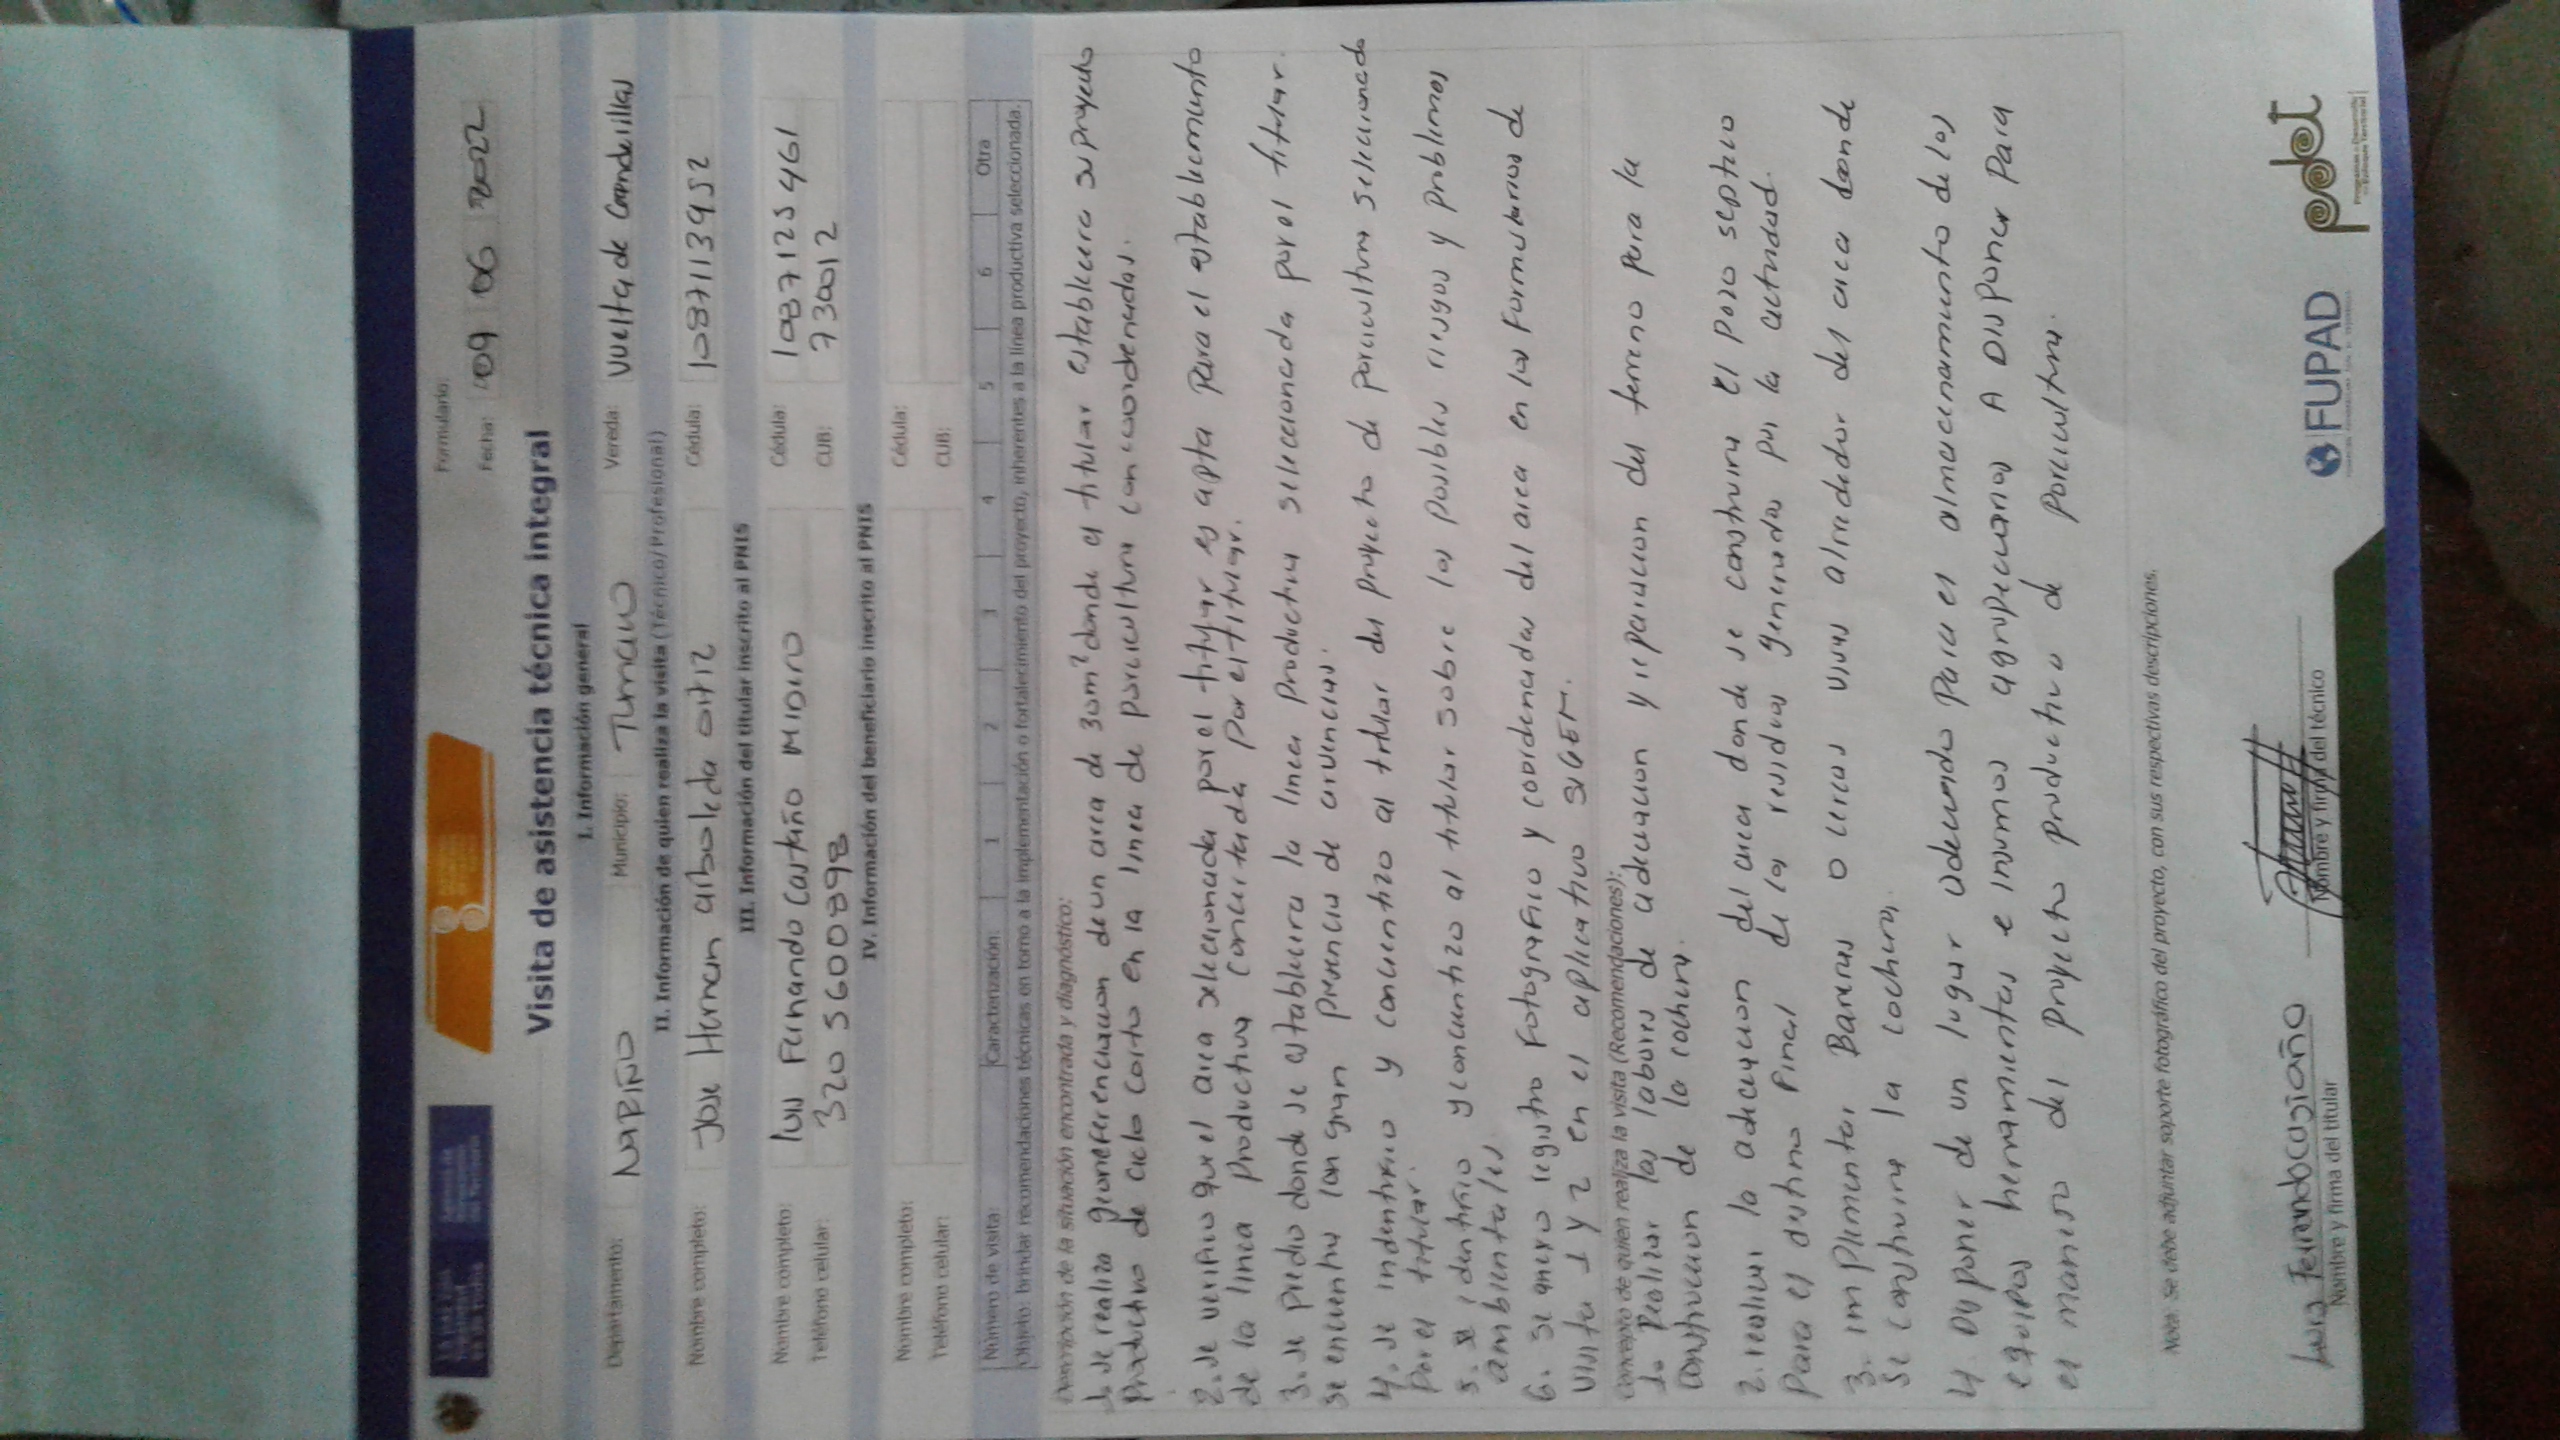 Formulario:
Fecha: 09 06 2022
Visita de asistencia técnica integral
I. Información general
Departamento: NARIÑO Municipio: TUMACO Vereda: Vuelta de Candelillas
II. Información de quien realiza la visita (Técnico/Profesional)
Nombre completo: Jose Hernan arboleda ortiz Cédula: 1087113952
III. Información del titular inscrito al PNIS
Nombre completo: luis Fernando Castaño Cédula: 1087125461
Teléfono celular: 320 5600898 CUB: 730012
IV. Información del beneficiario inscrito al PNIS
Nombre completo: Cédula:
Teléfono celular: CUB:
Número de visita: Caracterización: 1 2 3 4 5 6 Otra
Objeto: Brindar recomendaciones técnicas en torno a la implementación o fortalecimiento del proyecto, inherentes a la línea productiva seleccionada.
Descripción de la situación encontrada y diagnóstico:
1. se realizo georeferenciacion de un area de 30m² donde el titular establecera su proyecto
productivo de ciclo corto en la linea de porcicultura con coordenadas.
2. se verifico que el area seleccionada por el titular es apta para el establecimiento
de la linea productiva concertada por el titular.
3. se predio donde se establecera la linea productiva seleccionada por el titular.
se encuentra con gran presencia de
4. se indentifico y concientizo al titular del proyecto de porcicultura seleccionado
por el titular.
5. se identifico y concientizo al titular sobre los posibles riesgos y problemas
ambientales
6. se anexo registro Fotografico y coordenadas del area en los formularios de
visita 1 y 2 en el aplicativo SIGEM.
Concepto de quien realiza la visita (Recomendaciones):
1. Realizar las labores de adecuacion y reparacion del terreno para la
construccion de la cochera.
2. realizar la adecuacion del area donde se construira el pozo septico
Para el destino final de los residuos generados por la actividad.
3. implementar Barreras o cercas vivas alrededor del area donde
se construira la cochera.
4 Disponer de un lugar adecuado para el almacenamiento de los
equipos herramientas e insumos agropecuarios A Disponer Para
el manejo del proyecto productivo de porcicultura.
Nota: Se debe adjuntar soporte fotográfico del proyecto, con sus respectivas descripciones.
Luis Fernando castaño
Nombre y firma del titular Nombre y firma del técnico
FUPAD pdet